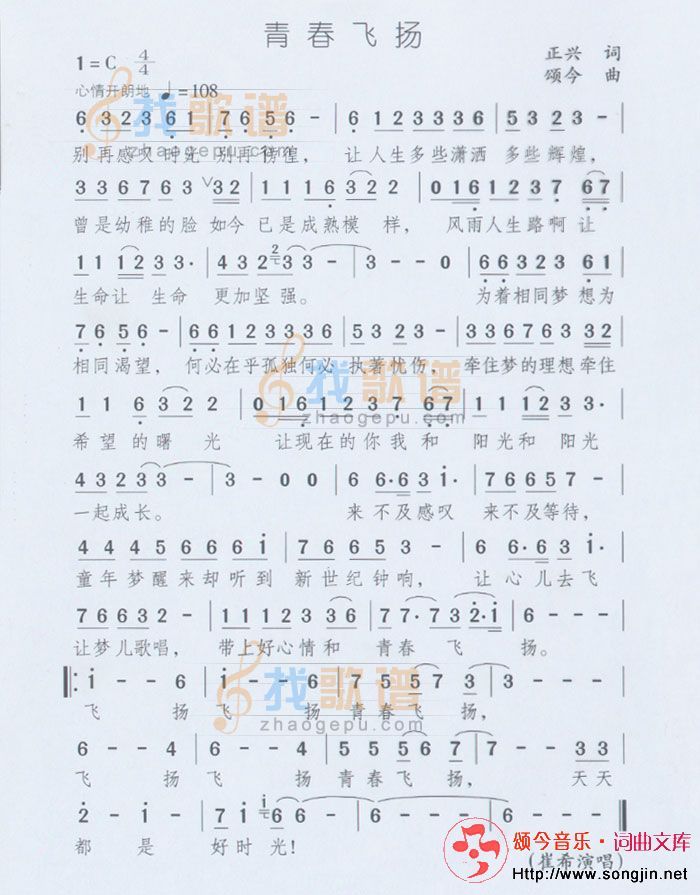 青春飞扬
1=C 4/4
正兴 词
颂今 曲
心情开朗地 ♩=108
6 3 2 3 6 1 7 6 5 6 - | 6 1 2 3 3 3 6 5 3 2 3 - |
别再感叹时光 别再彷徨， 让人生多些潇洒 多些辉煌，
3 3 6 7 6 7 6 3 ∨ 3 2 | 1 1 1 6 3 2 2 - | 0 1 6 1 2 3 7 6 7 |
曾是幼稚的脸 如今 已是成熟模 样， 风雨人生路啊 让
1 1 1 2 3 3· | 4 3 2 2 3 3 - | 3 - - 0 | 6 6 3 2 3 6 1 |
生命让 生命 更加坚强。 为着相同梦 想为
7 6 5 6 - | 6 6 1 2 3 3 3 6 | 5 3 2 3 - | 6 3 3 6 7 6 3 3 2 |
相同渴望， 何必在乎孤独何必 执著忧伤， 牵住梦的理想牵住
1 1 6 3 2 2 | 0 1 6 1 2 3 7 6 7 | 1 1 1 2 3 3· |
希望的曙 光 让现在的你我和 阳光和 阳光
4 3 2 3 3 - | 3 - 0 0 | 6 6·6 3 i· | 7 6 6 5 7 - |
一起成长。 来不及感叹 来不及等待，
4 4 4 5 6 6 6 i | 7 6 6 5 3 - | 6 6·6 0 i |
童年梦醒来却听到 新世纪钟响， 让心儿去飞
7 6 6 3 2 - | 1 1 1 2 3 3 | 7 7·7 3 2·i | i - - - |
让梦儿歌唱， 带上好心情和 青春飞 扬。
i - - 6 | i - - 6 | 7 5 5 7 3 | 3 - - - |
飞 扬 飞 扬 青春飞 扬，
6 - - 4 | 6 - - 4 | 5 5 5 6 7 | 7 - - 3 3 |
飞 扬 飞 扬 青春飞 扬， 天天
2 - i - | 7 i 6 6 | 6 - - - |
都 是 好时光！
(崔希演唱)
找歌谱
zhaogepu.com
找歌谱
zhaogepu.com
找歌谱
zhaogepu.com
颂今音乐·词曲文库
Http://www.songjin.net